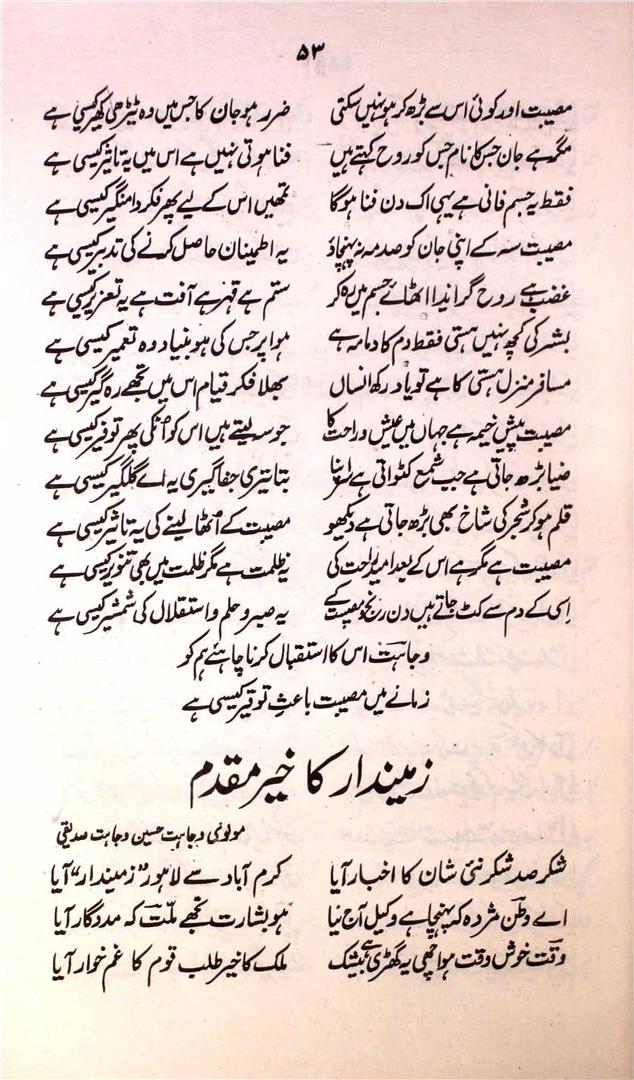 ۵۳
مصیبت اور کوئی اس سے بڑھ کر ہو نہیں سکتی ضرر ہو جان کا جس میں وہ ٹیڑھی کھیر کیسی ہے
مگر ہے جان جس کا نام جس کو روح کہتے ہیں فنا ہوتی نہیں ہے اس میں یہ تاثیر کیسی ہے
فقط یہ جسم فانی ہے یہی اک دن فنا ہوگا تمھیں اس کے لیے پھر فکر دامنگیر کیسی ہے
مصیبت سہ کے اپنی جان کو صدمہ نہ پہنچاؤ یہ اطمینان حاصل کرنے کی تدبیر کیسی ہے
غضب ہے روح گر ایذا اٹھائے جسم میں رہ کر ستم ہے قہر ہے آفت ہے یہ تعزیر کیسی ہے
بشر کی کچھ نہیں ہستی فقط دم کا دمامہ ہے ہوا پر جس کی ہو بنیاد وہ تعمیر کیسی ہے
مسافر منزل ہستی کا ہے تو یاد رکھ انساں بھلا فکر قیام اس میں تجھے رہ گیر کیسی ہے
مصیبت پیش خیمہ ہے جہاں میں عیش و راحت کا جو سہ لیتے ہیں اس کو انکی پھر توقیر کیسی ہے
ضیا بڑھ جاتی ہے جب شمع کٹواتی ہے سر اپنا بتا تیری جفا گیری یہ اے گلگیر کیسی ہے
قلم ہو کر شجر کی شاخ بھی بڑھ جاتی ہے دیکھو مصیبت کے اٹھا لینے کی یہ تاثیر کیسی ہے
مصیبت ہے مگر ہے اس کے بعد امید راحت کی یہ ظلمت ہے مگر ظلمت میں بھی تنویر کیسی ہے
اسی کے دم سے کٹ جاتے ہیں دن رنج و مصیبت کے یہ صبر و حلم و استقلال کی شمشیر کیسی ہے
وجاہت اس کا استقبال کرنا چاہئے ہم کو
زمانے میں مصیبت باعثِ توقیر کیسی ہے
زمیندار کا خیر مقدم
مولوی وجاہت حسین وجاہت صدیقی
شکر صد شکر نئی شان کا اخبار آیا کرم آباد سے لاہور "زمیندار" آیا
اے وطن مژدہ کہ پہنچا ہے وکیل آج نیا ہو بشارت تجھے ملّت کہ مددگار آیا
وقت خوش وقت ہوا چھی یہ گھڑی ہے بیشک ملک کا خیر طلب قوم کا غم خوار آیا